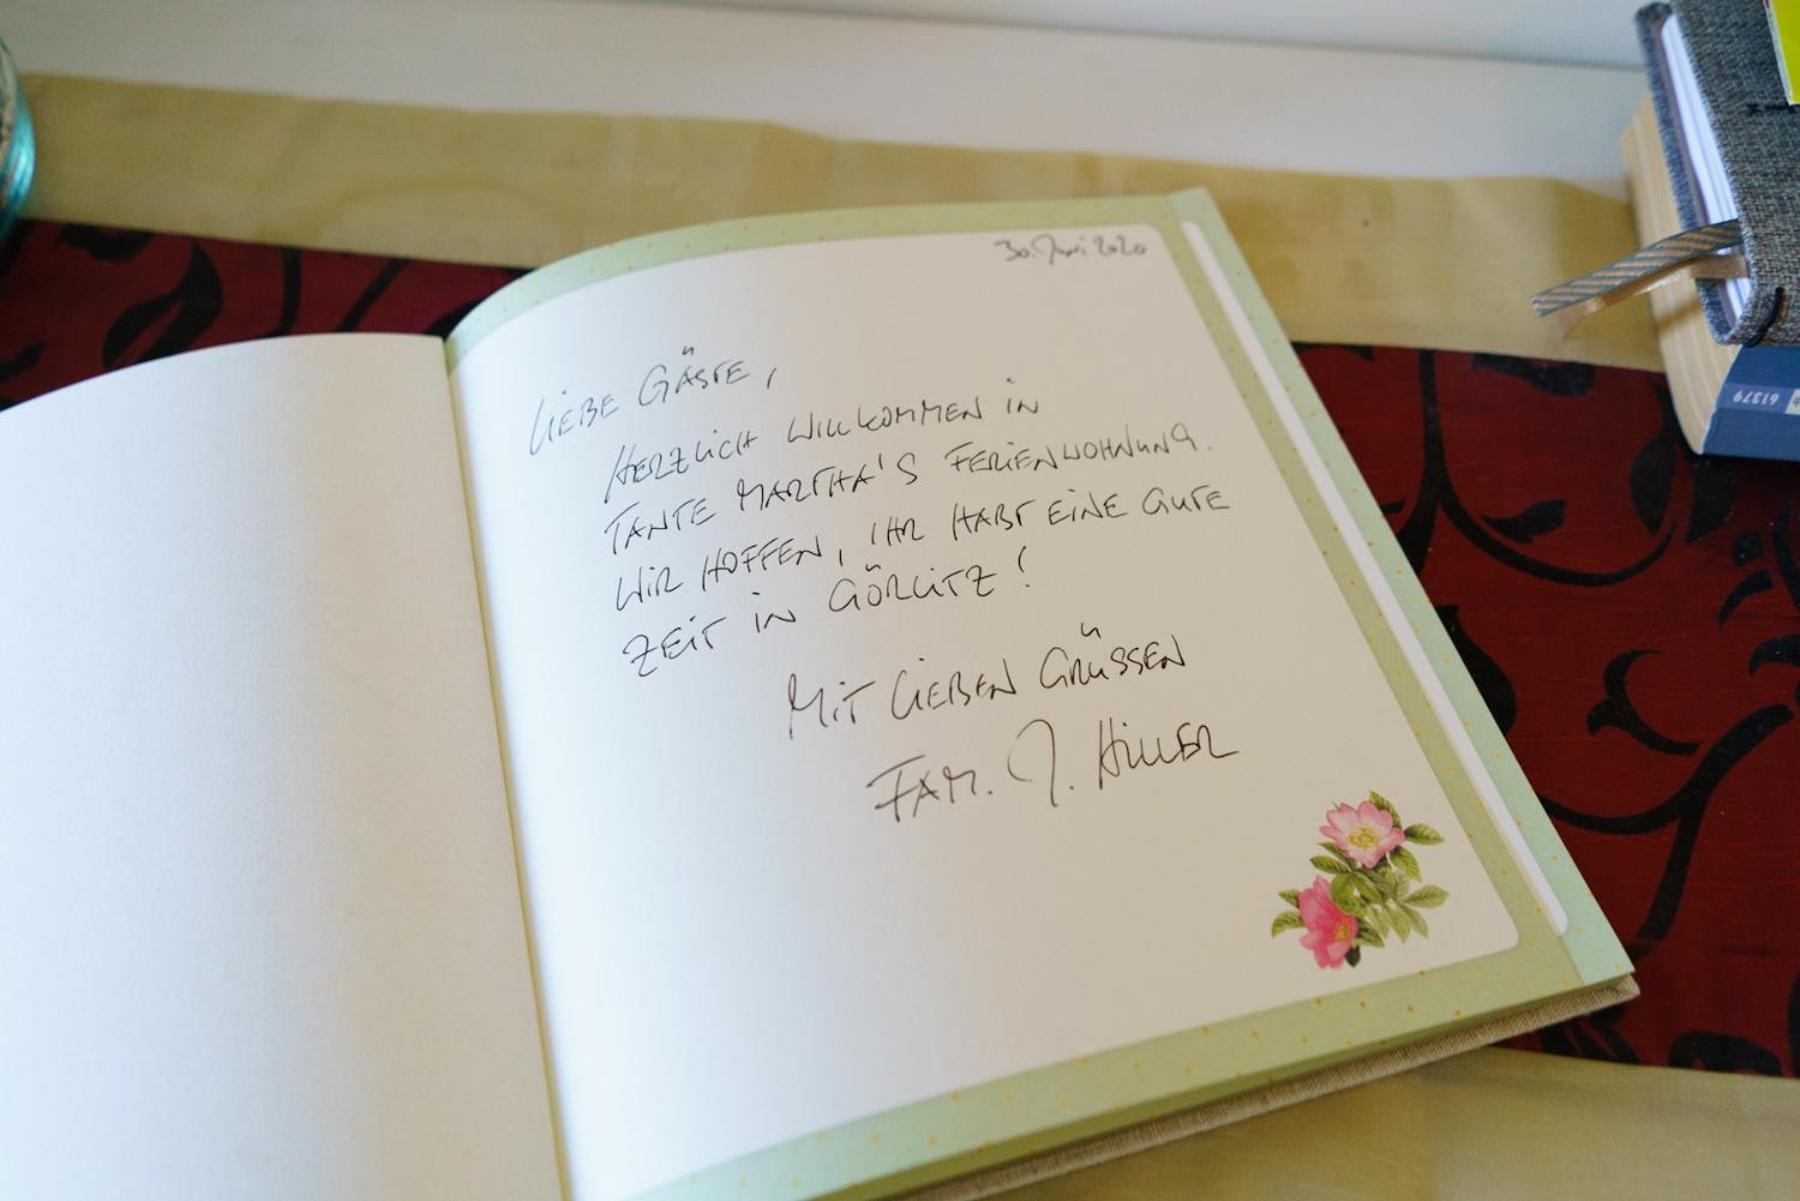 30. Juni 2020
LIEBE GÄSTE,
HERZLICH WILLKOMMEN IN
TANTE MARTHA'S FERIENWOHNUNG.
WIR HOFFEN, IHR HABT EINE GUTE
ZEIT IN GÖRLITZ!
MIT LIEBEN GRÜSSEN
FAM. J. HILLER
61379